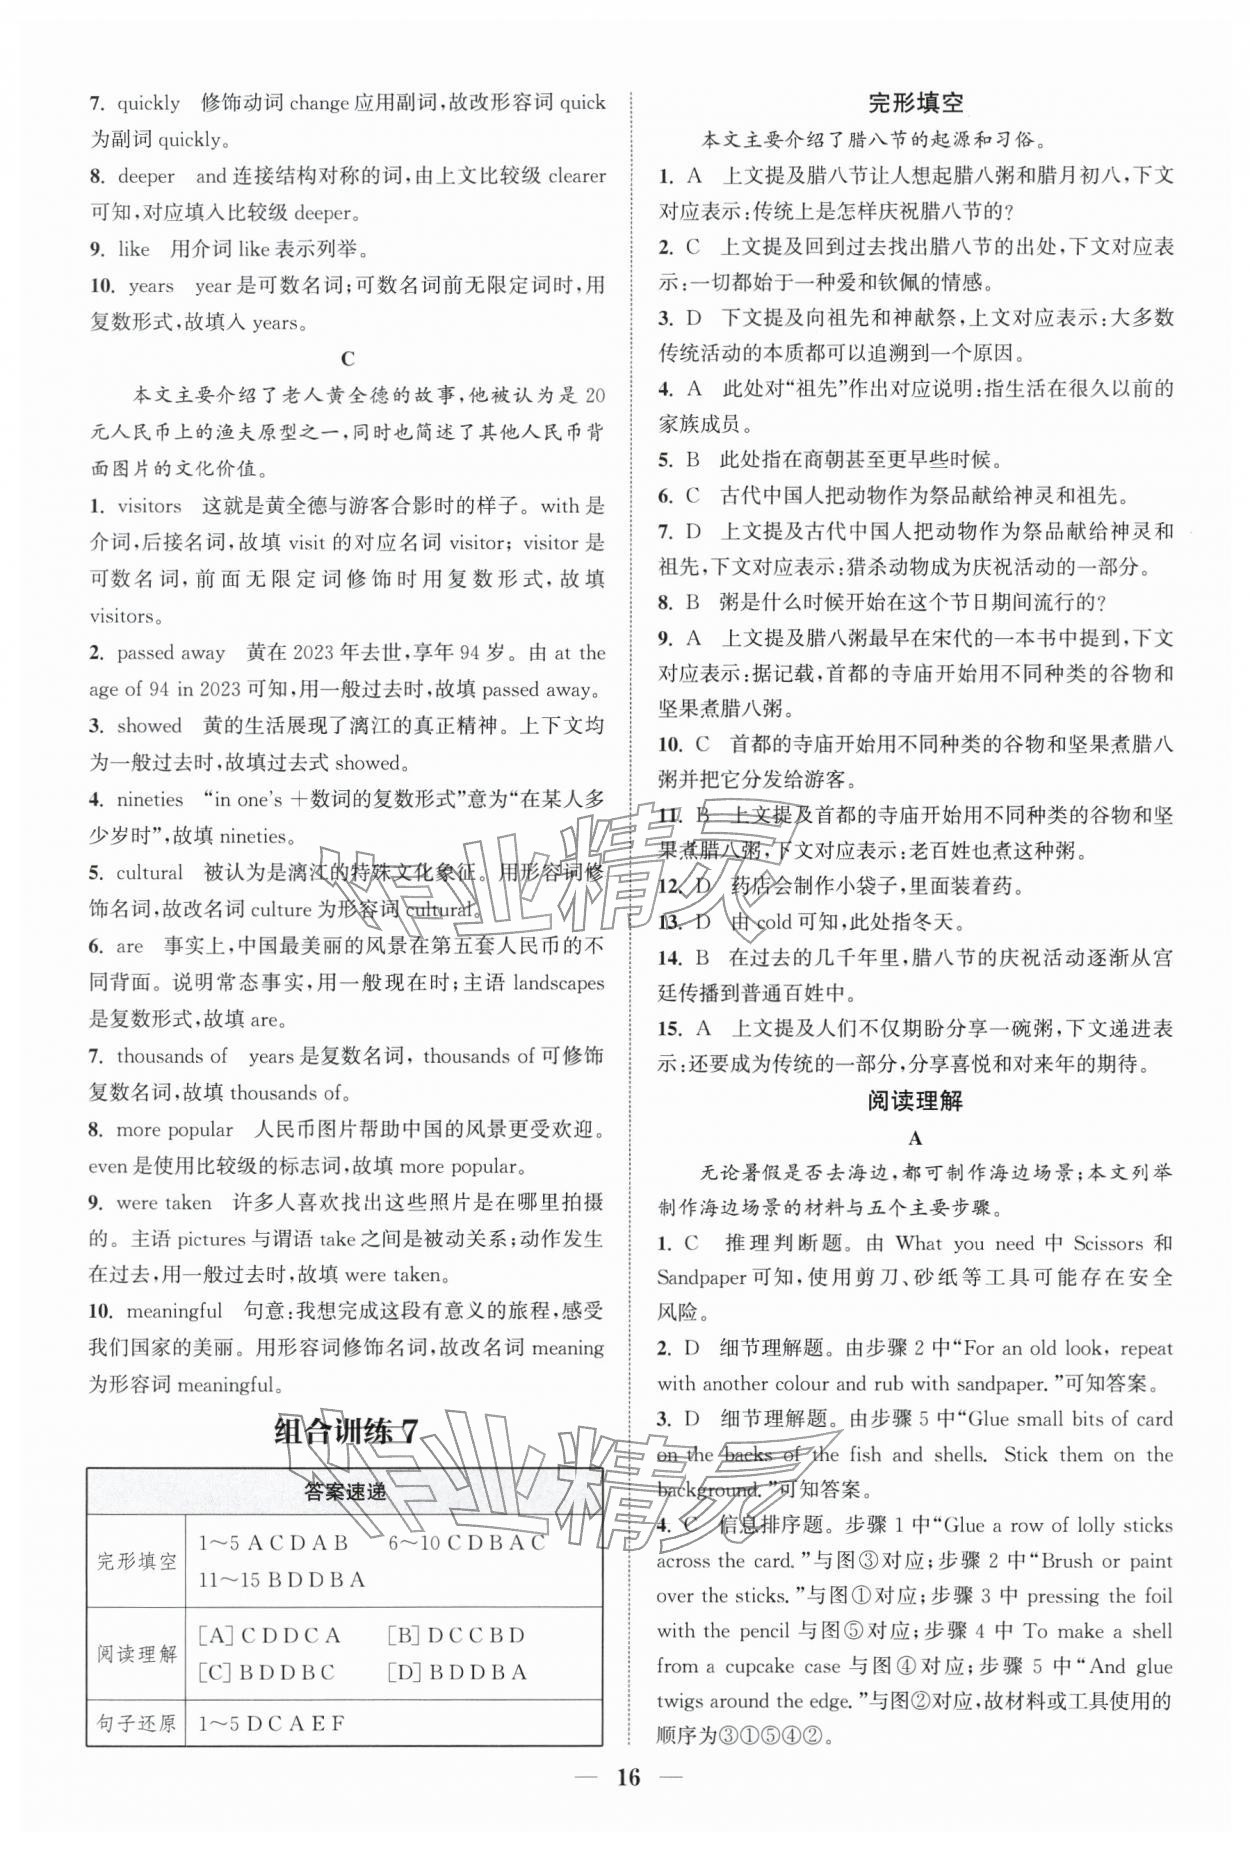 7. quickly 修饰动词 change 应用副词,故改形容词 quick
为副词 quickly。
8. deeper and 连接结构对称的词,由上文比较级 clearer
可知,对应填入比较级 deeper。
9. like 用介词 like 表示列举。
10. years year 是可数名词;可数名词前无限定词时,用
复数形式,故填入 years。
C
本文主要介绍了老人黄全德的故事,他被认为是 20
元人民币上的渔夫原型之一,同时也简述了其他人民币背
面图片的文化价值。
1. visitors 这就是黄全德与游客合影时的样子。with 是
介词,后接名词,故填 visit 的对应名词 visitor; visitor 是
可数名词,前面无限定词修饰时用复数形式,故填
visitors。
2. passed away 黄在 2023 年去世,享年 94 岁。由 at the
age of 94 in 2023 可知,用一般过去时,故填 passed away。
3. showed 黄的生活展现了漓江的真正精神。上下文均
为一般过去时,故填过去式 showed。
4. nineties “in one's +数词的复数形式”意为“在某人多
少岁时”,故填 nineties。
5. cultural 被认为是漓江的特殊文化象征。用形容词修
饰名词,故改名词 culture 为形容词 cultural。
6. are 事实上,中国最美丽的风景在第五套人民币的不
同背面。说明常态事实,用一般现在时;主语 landscapes
是复数形式,故填 are。
7. thousands of years 是复数名词, thousands of 可修饰
复数名词,故填 thousands of。
8. more popular 人民币图片帮助中国的风景更受欢迎。
even 是使用比较级的标志词,故填 more popular。
9. were taken 许多人喜欢找出这些照片是在哪里拍摄
的。主语 pictures 与谓语 take 之间是被动关系;动作发生
在过去,用一般过去时,故填 were taken。
10. meaningful 句意:我想完成这段有意义的旅程,感受
我们国家的美丽。用形容词修饰名词,故改名词 meaning
为形容词 meaningful。
组合训练 7
答案速递
完形填空 1～5 A C D A B 6～10 C D B A C
11～15 B D D B A
阅读理解 [A] C D D C A [B] D C C B D
[C] B D D B C [D] B D D B A
句子还原 1～5 D C A E F
完形填空
本文主要介绍了腊八节的起源和习俗。
1. A 上文提及腊八节让人想起腊八粥和腊月初八,下文
对应表示:传统上是怎样庆祝腊八节的?
2. C 上文提及回到过去找出腊八节的出处,下文对应表
示:一切都始于一种爱和钦佩的情感。
3. D 下文提及向祖先和神献祭,上文对应表示:大多数
传统活动的本质都可以追溯到一个原因。
4. A 此处对“祖先”作出对应说明:指生活在很久以前的
家族成员。
5. B 此处指在商朝甚至更早些时候。
6. C 古代中国人把动物作为祭品献给神灵和祖先。
7. D 上文提及古代中国人把动物作为祭品献给神灵和
祖先,下文对应表示:猎杀动物成为庆祝活动的一部分。
8. B 粥是什么时候开始在这个节日期间流行的?
9. A 上文提及腊八粥最早在宋代的一本书中提到,下文
对应表示:据记载,首都的寺庙开始用不同种类的谷物和
坚果煮腊八粥。
10. C 首都的寺庙开始用不同种类的谷物和坚果煮腊八
粥并把它分发给游客。
11. B 上文提及首都的寺庙开始用不同种类的谷物和坚
果煮腊八粥,下文对应表示:老百姓也煮这种粥。
12. D 药店会制作小袋子,里面装着药。
13. D 由 cold 可知,此处指冬天。
14. B 在过去的几千年里,腊八节的庆祝活动逐渐从宫
廷传播到普通百姓中。
15. A 上文提及人们不仅期盼分享一碗粥,下文递进表
示:还要成为传统的一部分,分享喜悦和对来年的期待。
阅读理解
A
无论暑假是否去海边,都可制作海边场景;本文列举
制作海边场景的材料与五个主要步骤。
1. C 推理判断题。由 What you need 中 Scissors 和
Sandpaper 可知,使用剪刀、砂纸等工具可能存在安全
风险。
2. D 细节理解题。由步骤 2 中“For an old look, repeat
with another colour and rub with sandpaper.”可知答案。
3. D 细节理解题。由步骤 5 中“Glue small bits of card
on the backs of the fish and shells. Stick them on the
background.”可知答案。
4. C 信息排序题。步骤 1 中“Glue a row of lolly sticks
across the card.”与图③对应;步骤 2 中“Brush or paint
over the sticks.”与图①对应;步骤 3 中 pressing the foil
with the pencil 与图⑤对应;步骤 4 中 To make a shell
from a cupcake case 与图④对应;步骤 5 中“And glue
twigs around the edge.”与图②对应,故材料或工具使用的
顺序为③①⑤④②。
16
作业精灵
作业精灵